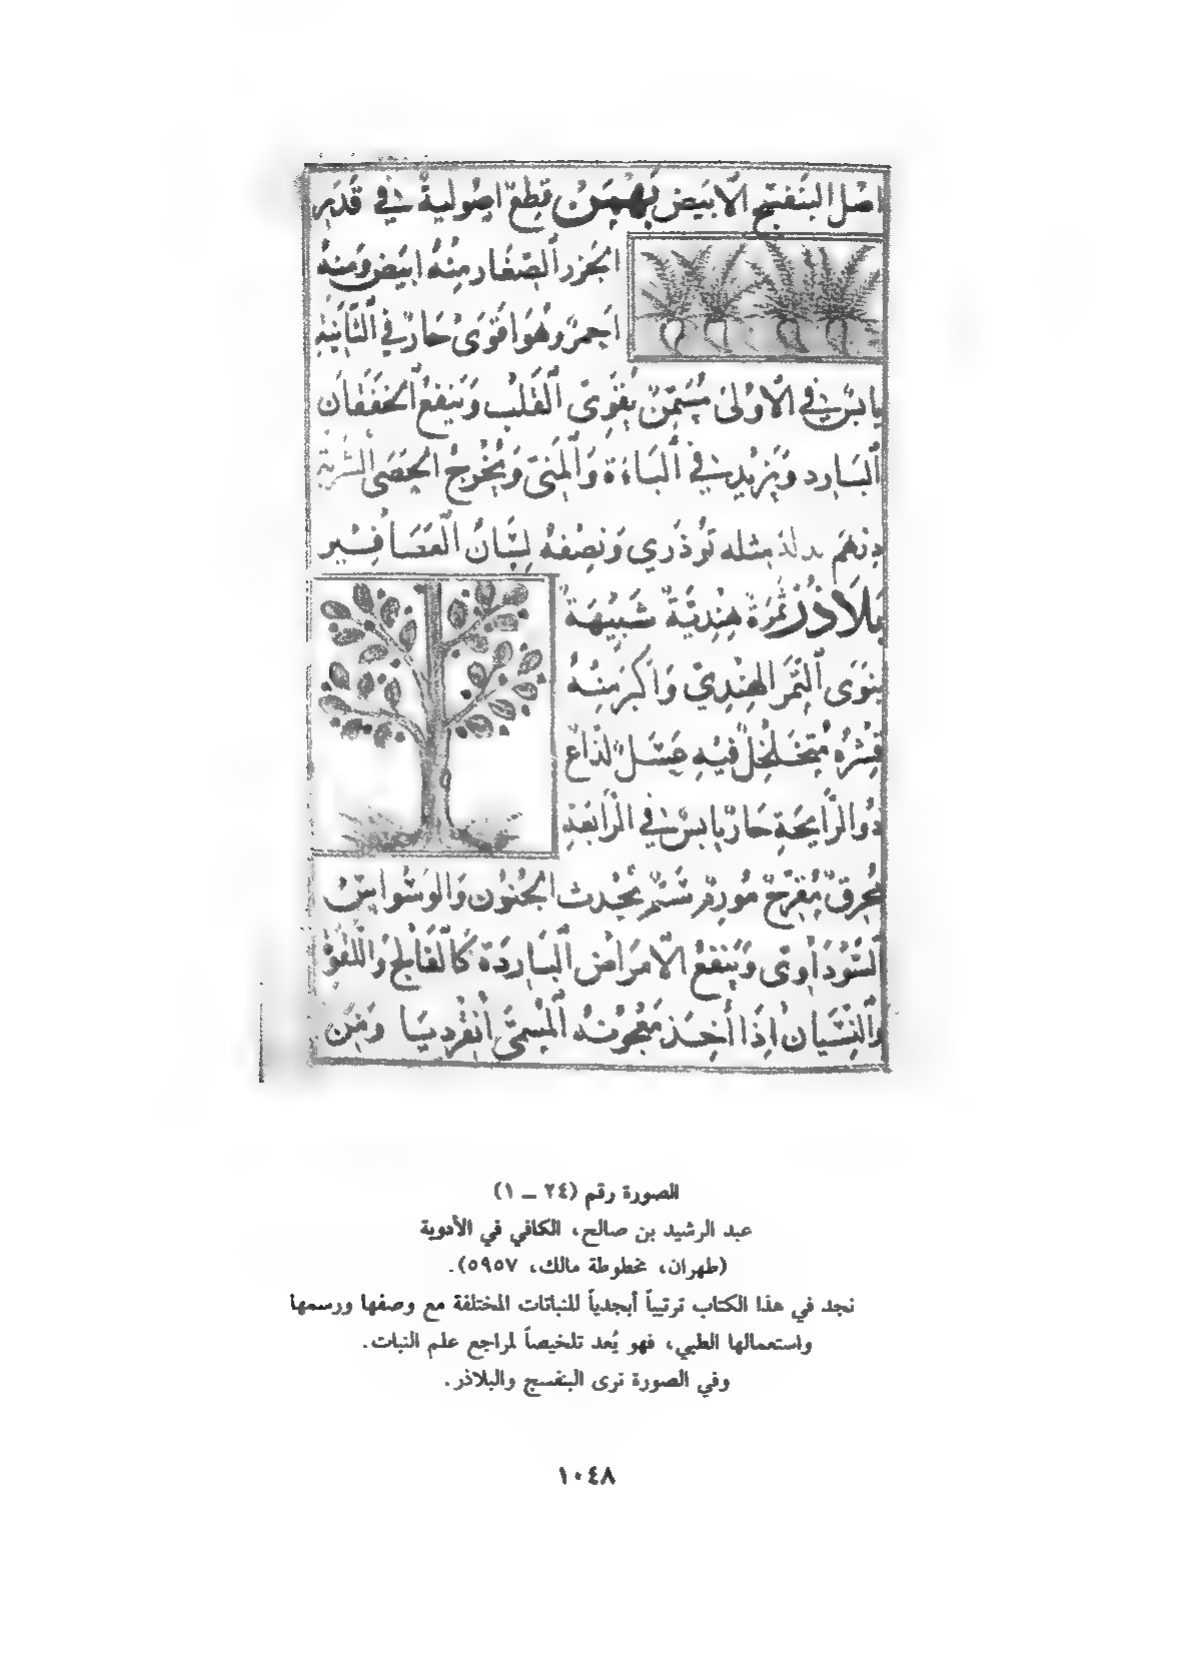 اصْل البَنَفسَج الأبيَض بَهمَن قِطَعٌ اصُوليةٌ في قَدَرِ
الجَزَر الصِّغَار مِنْهُ ابيَض وَمِنهُ
احمَرُ وَهُوَ اقوَى حَارٌّ في الثَّانِيَةِ
يَابسٌ في الأُولىٰ مُسَمِّنٌ يُقَوِّى القَلْبَ وَيَنفعُ الخَفَقَان
البَارِد وَيَزِيد في البَاءَة وَالمَنِىّ وَيُخْرِجُ الحَصَى الشَّربَة
دِرْهَم بدلهُ مِثله تُوذَري وَنصْفهُ لِسَانُ العَصَافِيْر
بَلَاذُر ثَمَرَةٌ هِنْدِيَّةٌ شَبِيْهَةٌ
بِنَوَى التَّمَر الهِنْدِيّ وَاكبَر مِنْهُ
قِشْرُه مُتَخَلخِلٌ فيْهِ عَسَلٌ لذّاع
ذُو الرَّايحَةِ حَارٌّ يابسٌ في الرَّابعَةِ
مُحْرِقٌ مُقَرِّحٌ مُورِمٌ سَمٌّ يُحْدِث الجُنُون وَالوَسْوَاسَ
السَّودَاوىّ وَيَنفعُ الأمرَاضَ البَارِدَة كَالفَالِج وَاللَّقْوَة
والنِّسْيَانُ إذَا أُخِذ مَعْجُونُهُ المُسمَّى انقرديَا وَمِن
الصورة رقم (٢٤ ــ ١)
عبد الرشيد بن صالح، الكافي في الأدوية
(طهران، مخطوطة مالك، ٥٩٥٧).
نجد في هذا الكتاب ترتيباً أبجدياً للنباتات المختلفة مع وصفها ورسمها
واستعمالها الطبي، فهو يُعد تلخيصاً لمراجع علم النبات.
وفي الصورة نرى البنفسج والبلاذر.
١٠٤٨